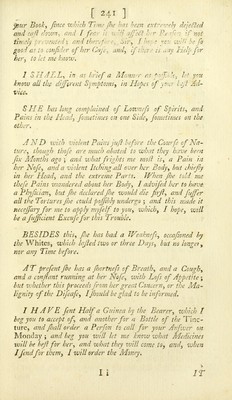 [ 241 ]
your Book, since which Time she has been extremely dejected
and cast down, and I fear it will affect her Reason, if not
timely prevented; and therefore, Sir, I hope you will be so
good as to consider of her Case, and, if there is any Help for
her, to let me know.
I SHALL, in as brief a Manner as possible, let you
know all the different Symptoms, in Hopes of your best Ad-
vice.
SHE has long complained of Lowness of Spirits, and
Pains in the Head, sometimes on one Side, sometimes on the
other.
AND with violent Pains just before the Course of Na-
ture, though those are much abated to what they have been
six Months ago; and what frights me most is, a Pain in
her Nose, and a violent Itching all over her Body, but chiefly
in her Head, and the extreme Parts. When she told me
these Pains wandered about her Body, I advised her to have
a Physician, but she declared she would die first, and suffer
all the Tortures she could possibly undergo; and this made it
necessary for me to apply myself to you, which, I hope, will
be a sufficient Excuse for this Trouble.
BESIDES this, she has had a Weakness, occasioned by
the Whites, which lasted two or three Days, but no longer,
nor any Time before.
AT present she has a shortness of Breath, and a Cough,
and a constant running at her Nose, with Loss of Appetite;
but whether this proceeds from her great Concern, or the Ma-
lignity of the Disease, I should be glad to be informed.
I HAVE sent Half a Guinea by the Bearer, which I
beg you to accept of, and another for a Bottle of the Tinc-
ture, and shall order a Person to call for your Answer on
Monday; and beg you will let me know what Medicines
will be best for her, and what they will come to, and, when
I send for them, I will order the Money.
I i
IT